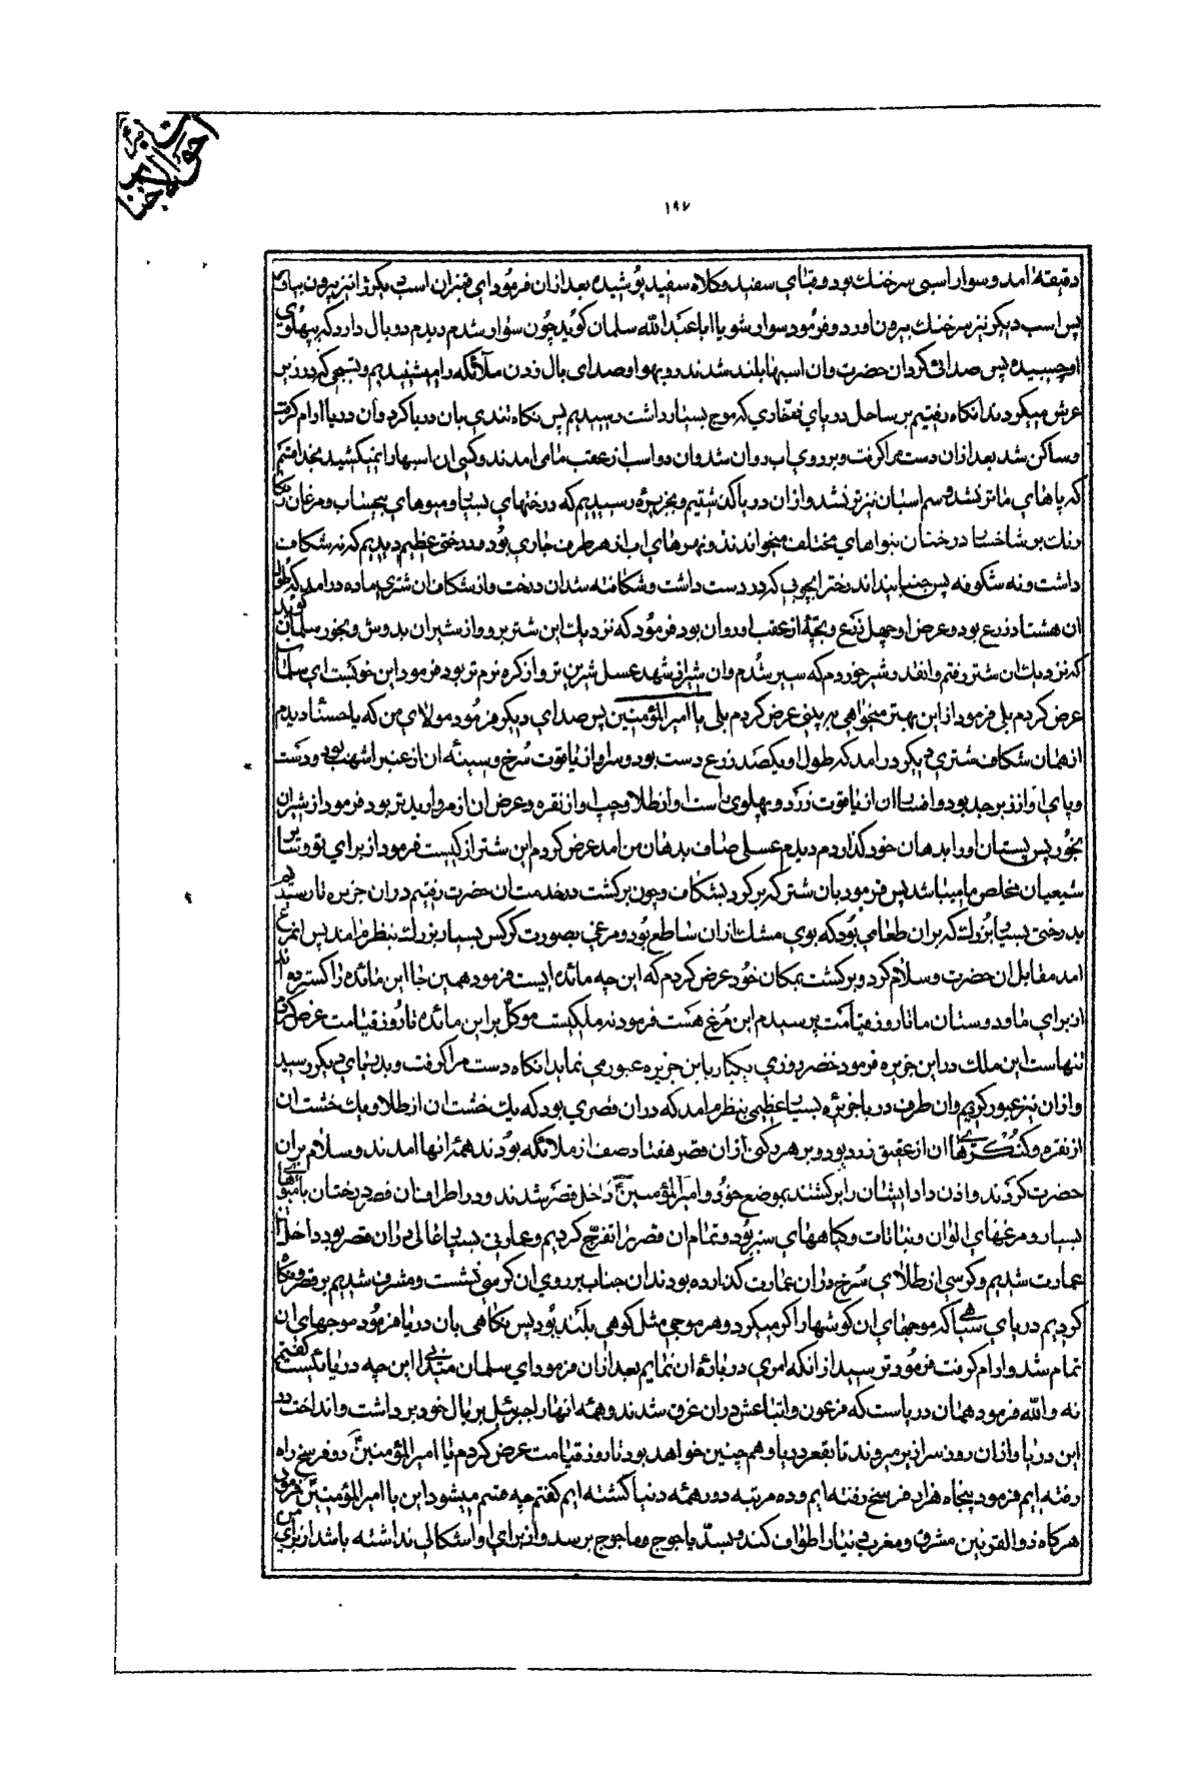 ۱۹۷
دقیقهٔ امد و سوار اسبی سرخنك بود و قبای سفید و کلاه سفید پوشیده بعد ازان فرمود ای قنبر ان اسب دیکر را نیز بیرون بیاور
پس اسب دیکر نیز سرخنك بیرون اورد و فرمود سوار شو یا ابا عبدالله سلمان کوید چون سوار شدم دیدم دو بال دارد که بپهلوی
او چسبیده پس صدائی کرد ان حضرت و ان اسبها بلند شدند رو بهوا و صدای بال زدن ملائکه را میشنیدیم و تسبیحی که در زیر
عرش میکردند انکاه رفتیم بر ساحل دریای که موج بسیار داشت رسیدیم پس نکاه تندی بان دریا کرد و ان دریا ارام کرفت
و ساکن شد بعد ازان دست مرا کرفت و بر روی اب روان شد و ان دو اسب از عقب ما می امدند و کسی ان اسبها را نمیکشید بخدا قسم
که پاهای ما تر نشد و سم اسبان نیز تر نشد و ازان دریا کذشتیم و بجزیره رسیدیم که درختهای بسیار و میوهای بیحساب و مرغان رنکا
رنك بر شاخسا درختان بنواهای مختلف میخواندند و نهرهای اب از هر طرف جاری بود و درختی عظیم دیدیم که نه شکاف
داشت و نه شکوفه پس جنبانید اندرخترا بچوبی که در دست داشت و شکافته شد ان درخت و از شکاف ان شتری ماده در امد که طول
ان هشتاد زرع بود و عرض او چهل زرع و بچهٔ از عقب او روان بود فرمود که نزدیك این شتر برو و از شیر ان بدوش و بخور سلمان کوید
که نزدیك ان شتر رفتم و انقدر شیر خوردم که سیر شدم و ان شیر از شهد عسل شیرین تر و از کره نرم تر بود فرمود این خوبست ای سلمان
عرض کردم بلی فرمود از این بهتر میخواهی ببینی عرض کردم بلی یا امیرالمؤمنین پس صدای دیکر فرمود مولای من که یا حسناء دیدم
از همان شکاف شتری دیکر در امد که طول او یکصد زرع دست بود و سر او از یاقوت سرخ و سینهٔ ان از عنبر اشهب بود و دست
و پای او از زبرجد بود و ان از یاقوت زرد و پهلوی راست او از طلا و چپ او از نقره و عرض ان از مروارید تر بود فرمود از شیر ان
بخور پس پستان او را بدهان خود کذاردم دیدم عسلی صاف بدهان من امد عرض کردم این شتر از کیست فرمود از برای تو و سایر
شیعیان مخلص ما میباشد پس فرمود بان شتر که برکرد بشکاف و چون برکشت در خدمت ان حضرت رفتیم دران جزیره تا رسیدیم
بدرختی بسیار بزرك که بران طعامی بود که بوی مشك ازان ساطع بود و مرغی بصورت کرکس بسیار بزرك بنظر ما امد پس انمرغ
امد مقابل ان حضرت و سلام کرد و برکشت بمکان خود عرض کردم که این چه مائده ایست فرمود همین جا این مائده را کسترده اند
از برای ما و دوستان ما تا روز قیامت پرسیدم این مرغ هست فرمودند ملکیست موکل بر این مائده تا روز قیامت عرض کردم
تنهاست این ملك در این جزیره فرمود خضر روزی یکبار باین جزیره عبور می نماید انکاه دست مرا کرفت و بدریای دیکر رسید
و ازان نیز عبور کردیم و ان طرف دریا جزیره بسیار عظیمی بنظرم امد که دران قصری بود که یك خشت ان از طلا و یك خشت ان
از نقره و کنکرهای ان از عقیق زرد بود و بر هر رکنی ازان قصر هفتاد صف از ملائکه بودند همهٔ انها امدند و سلام بران
حضرت کردند و اذن داد ایشان را برکشتند بموضع خود و امیرالمؤمنین داخل قصر شدند و در اطراف ان قصر درختان با میوهای
بسیار و مرغهای الوان و نباتات و کیاههای سبز بود و تمام ان قصر را تفرج کردیم و عمارتی بسیار عالی دران قصر بود داخل ان
عمارت شدیم و کرسی از طلای سرخ دران عمارت کذارده بودند ان جناب بر روی ان کرسی نشست و مشرف شدیم بر قصر و نکاه
کردیم دریای سیاهی که موجهای ان کوشها را کر میکرد و هر موجی مثل کوهی بلند بود پس نکاهی بان دریا فرمود موجهای ان
تمام شد و ارام کرفت فرمود ترسید از انکه امری دربارهٔ ان نمایم بعد ازان فرمود ای سلمان میدانی این چه دریائیست کفتم
نه والله فرمود همان دریاست که فرعون و اتباعش دران غرق شدند و همه انها را جبرئیل بر بال خود برداشت و انداخت در
این دریا و ازان روز سرازیر میروند تا بقعر دریا و هم چنین خواهد بود تا روز قیامت عرض کردم یا امیرالمؤمنین دو فرسخ راه
رفته ایم فرمود پنجاه هزار فرسخ رفته ایم و ده مرتبه دور همه دنیا کشته ایم کفتم چه قسم میشود این یا امیرالمؤمنین فرمود
هرکاه ذوالقرنین مشرق و مغرب دنیا را طواف کند و بسد یاجوج و ماجوج برسد و از برای او اشکالی نداشته باشد از برای من